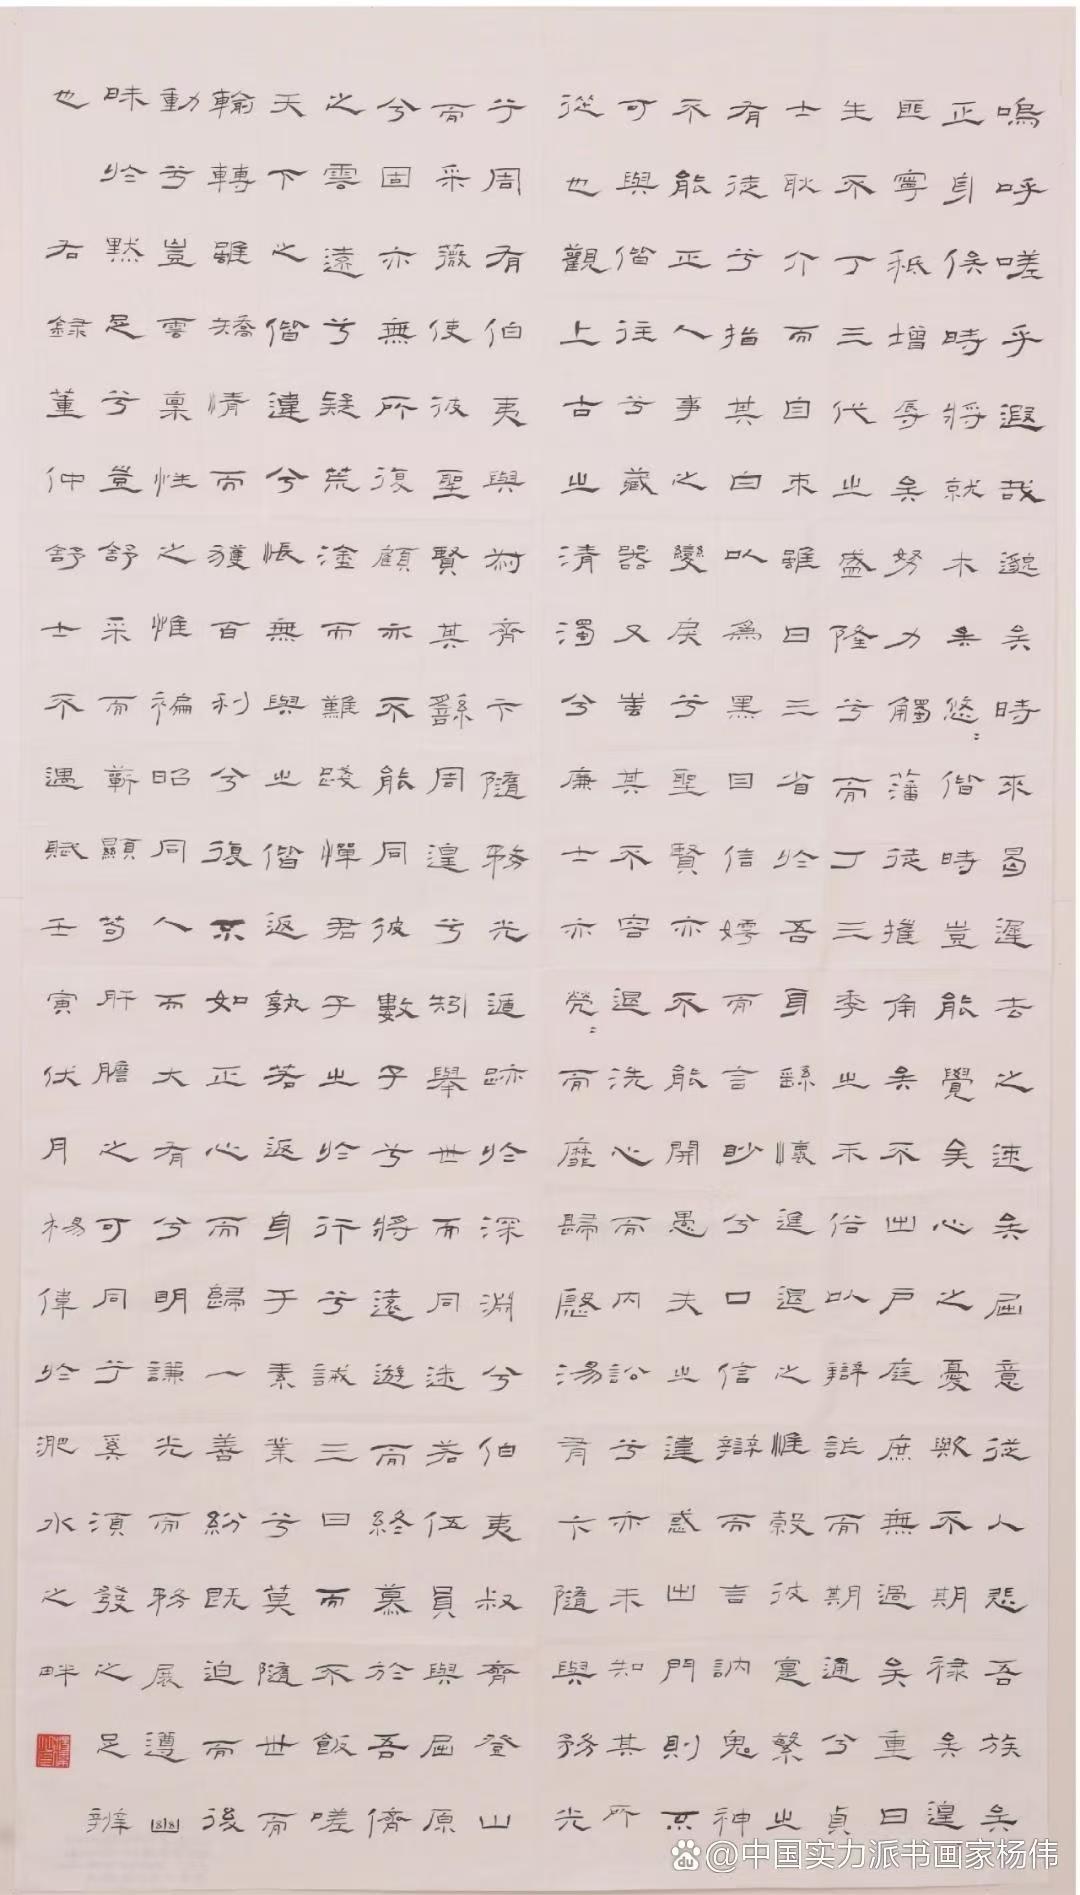 嗚呼嗟乎遐哉邈矣時來曷遲去之速矣屈意從人悲吾族矣
正身俟時將就木矣悠〻偕時豈能覺矣心之憂歟不期祿矣遑
匪寧秖增辱矣努力觸藩徒摧角矣不出戶庭庶無過矣重曰
生不丁三代之盛隆兮而丁三季之末俗以辯詐而期通兮貞
士耿介而自束雖日三省於吾身繇懷進退之惟穀彼寔繁之
有徒兮指其白以爲黑目信嫮而言眇兮口信辯而言訥鬼神
不能正人事之變戾兮聖賢亦不能開愚夫之違惑出門則不
可與偕往兮藏器又蚩其不容退洗心而內訟兮亦未知其所
從也觀上古之清濁兮廉士亦煢〻而靡歸殷湯有卞隨與務光
兮周有伯夷與叔齊卞隨務光遁跡於深淵兮伯夷叔齊登山
而采薇使彼聖賢其繇周遑兮矧舉世而同迷若伍員與屈原
兮固亦無所復顧亦不能同彼數子兮將遠遊而終慕於吾儕
之雲遠兮疑荒塗而難踐憚君子之於行兮誡三日而不飯嗟
天下之偕違兮悵無與之偕返孰若返身于素業兮莫隨世而
輪轉雖矯情而獲百利兮復不如正心而歸一善紛既迫而後
動兮豈雲稟性之惟褊昭同人而大有兮明謙光而務展遵幽
昧於默足兮豈舒采而蘄顯苟肝膽之可同兮奚須發之足辨
也 右録董仲舒士不遇賦壬寅伏月楊偉於淝水之畔
@中国实力派书画家杨伟